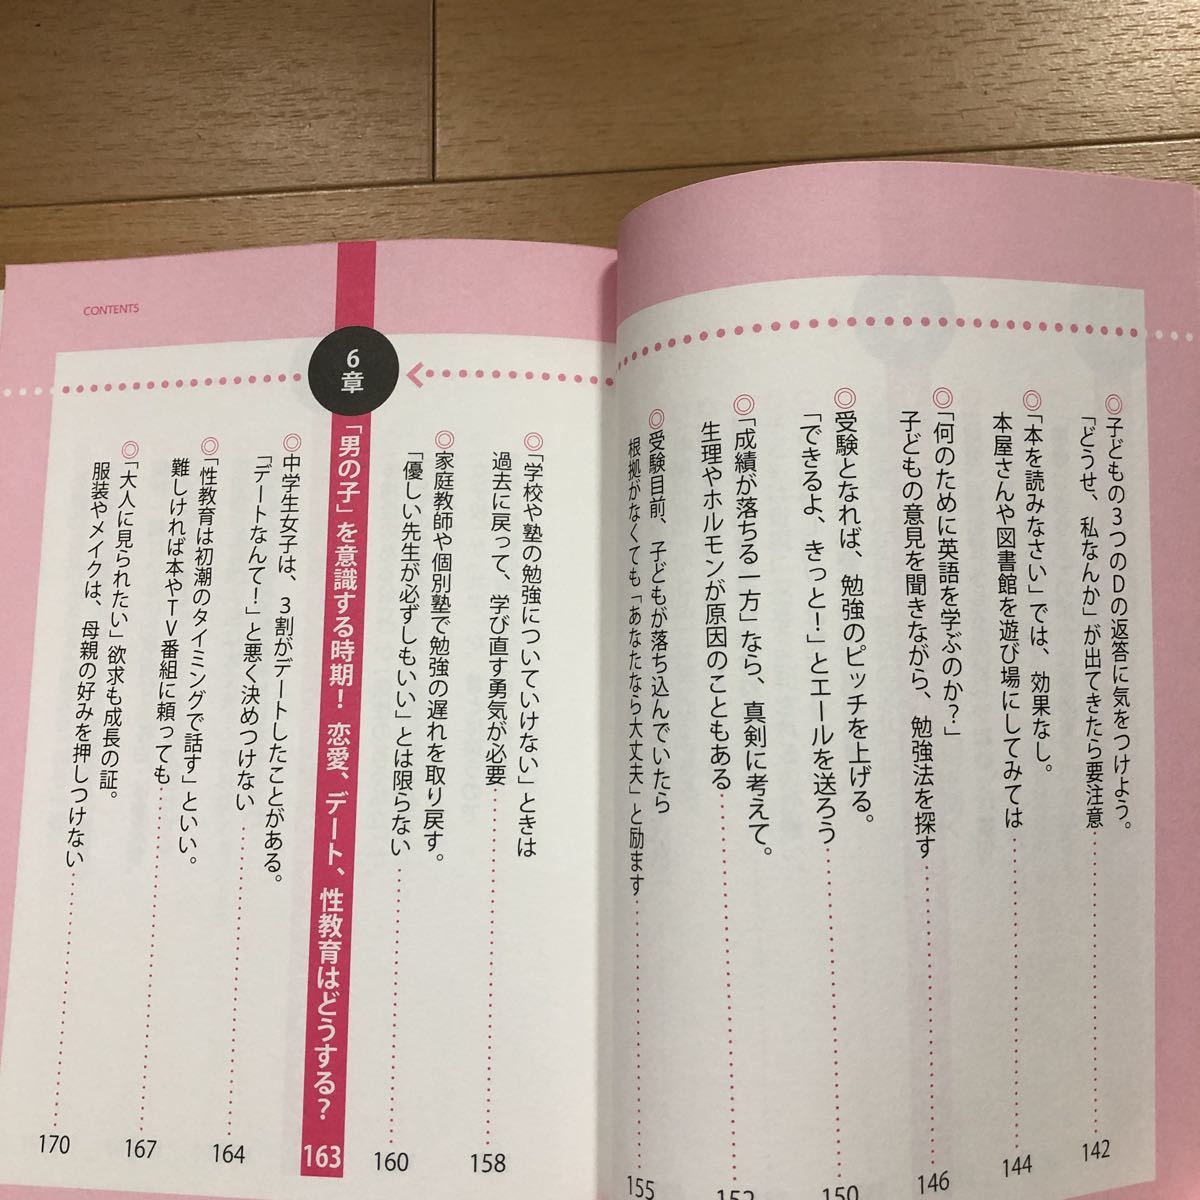 ◎子どもの3つのDの返答に気をつけよう。
「どうせ、私なんか」が出てきたら要注意
142
◎「本を読みなさい」では、効果なし。
本屋さんや図書館を遊び場にしてみては
144
◎「何のために英語を学ぶのか?」
子どもの意見を聞きながら、勉強法を探す
146
◎受験となれば、勉強のピッチを上げる。
「できるよ、きっと!」とエールを送ろう
150
◎「成績が落ちる一方」なら、真剣に考えて。
生理やホルモンが原因のこともある
152
◎受験目前、子どもが落ち込んでいたら
根拠がなくても「あなたなら大丈夫」と励ます
155
CONTENTS
◎「学校や塾の勉強についていけない」ときは
過去に戻って、学び直す勇気が必要
158
◎家庭教師や個別塾で勉強の遅れを取り戻す。
「優しい先生が必ずしもいい」とは限らない
160
6章
「男の子」を意識する時期! 恋愛、デート、性教育はどうする?
163
◎中学生女子は、3割がデートしたことがある。
「デートなんて!」と悪く決めつけない
164
◎「性教育は初潮のタイミングで話す」といい。
難しければ本やTV番組に頼っても
167
◎「大人に見られたい」欲求も成長の証。
服装やメイクは、母親の好みを押しつけない
170